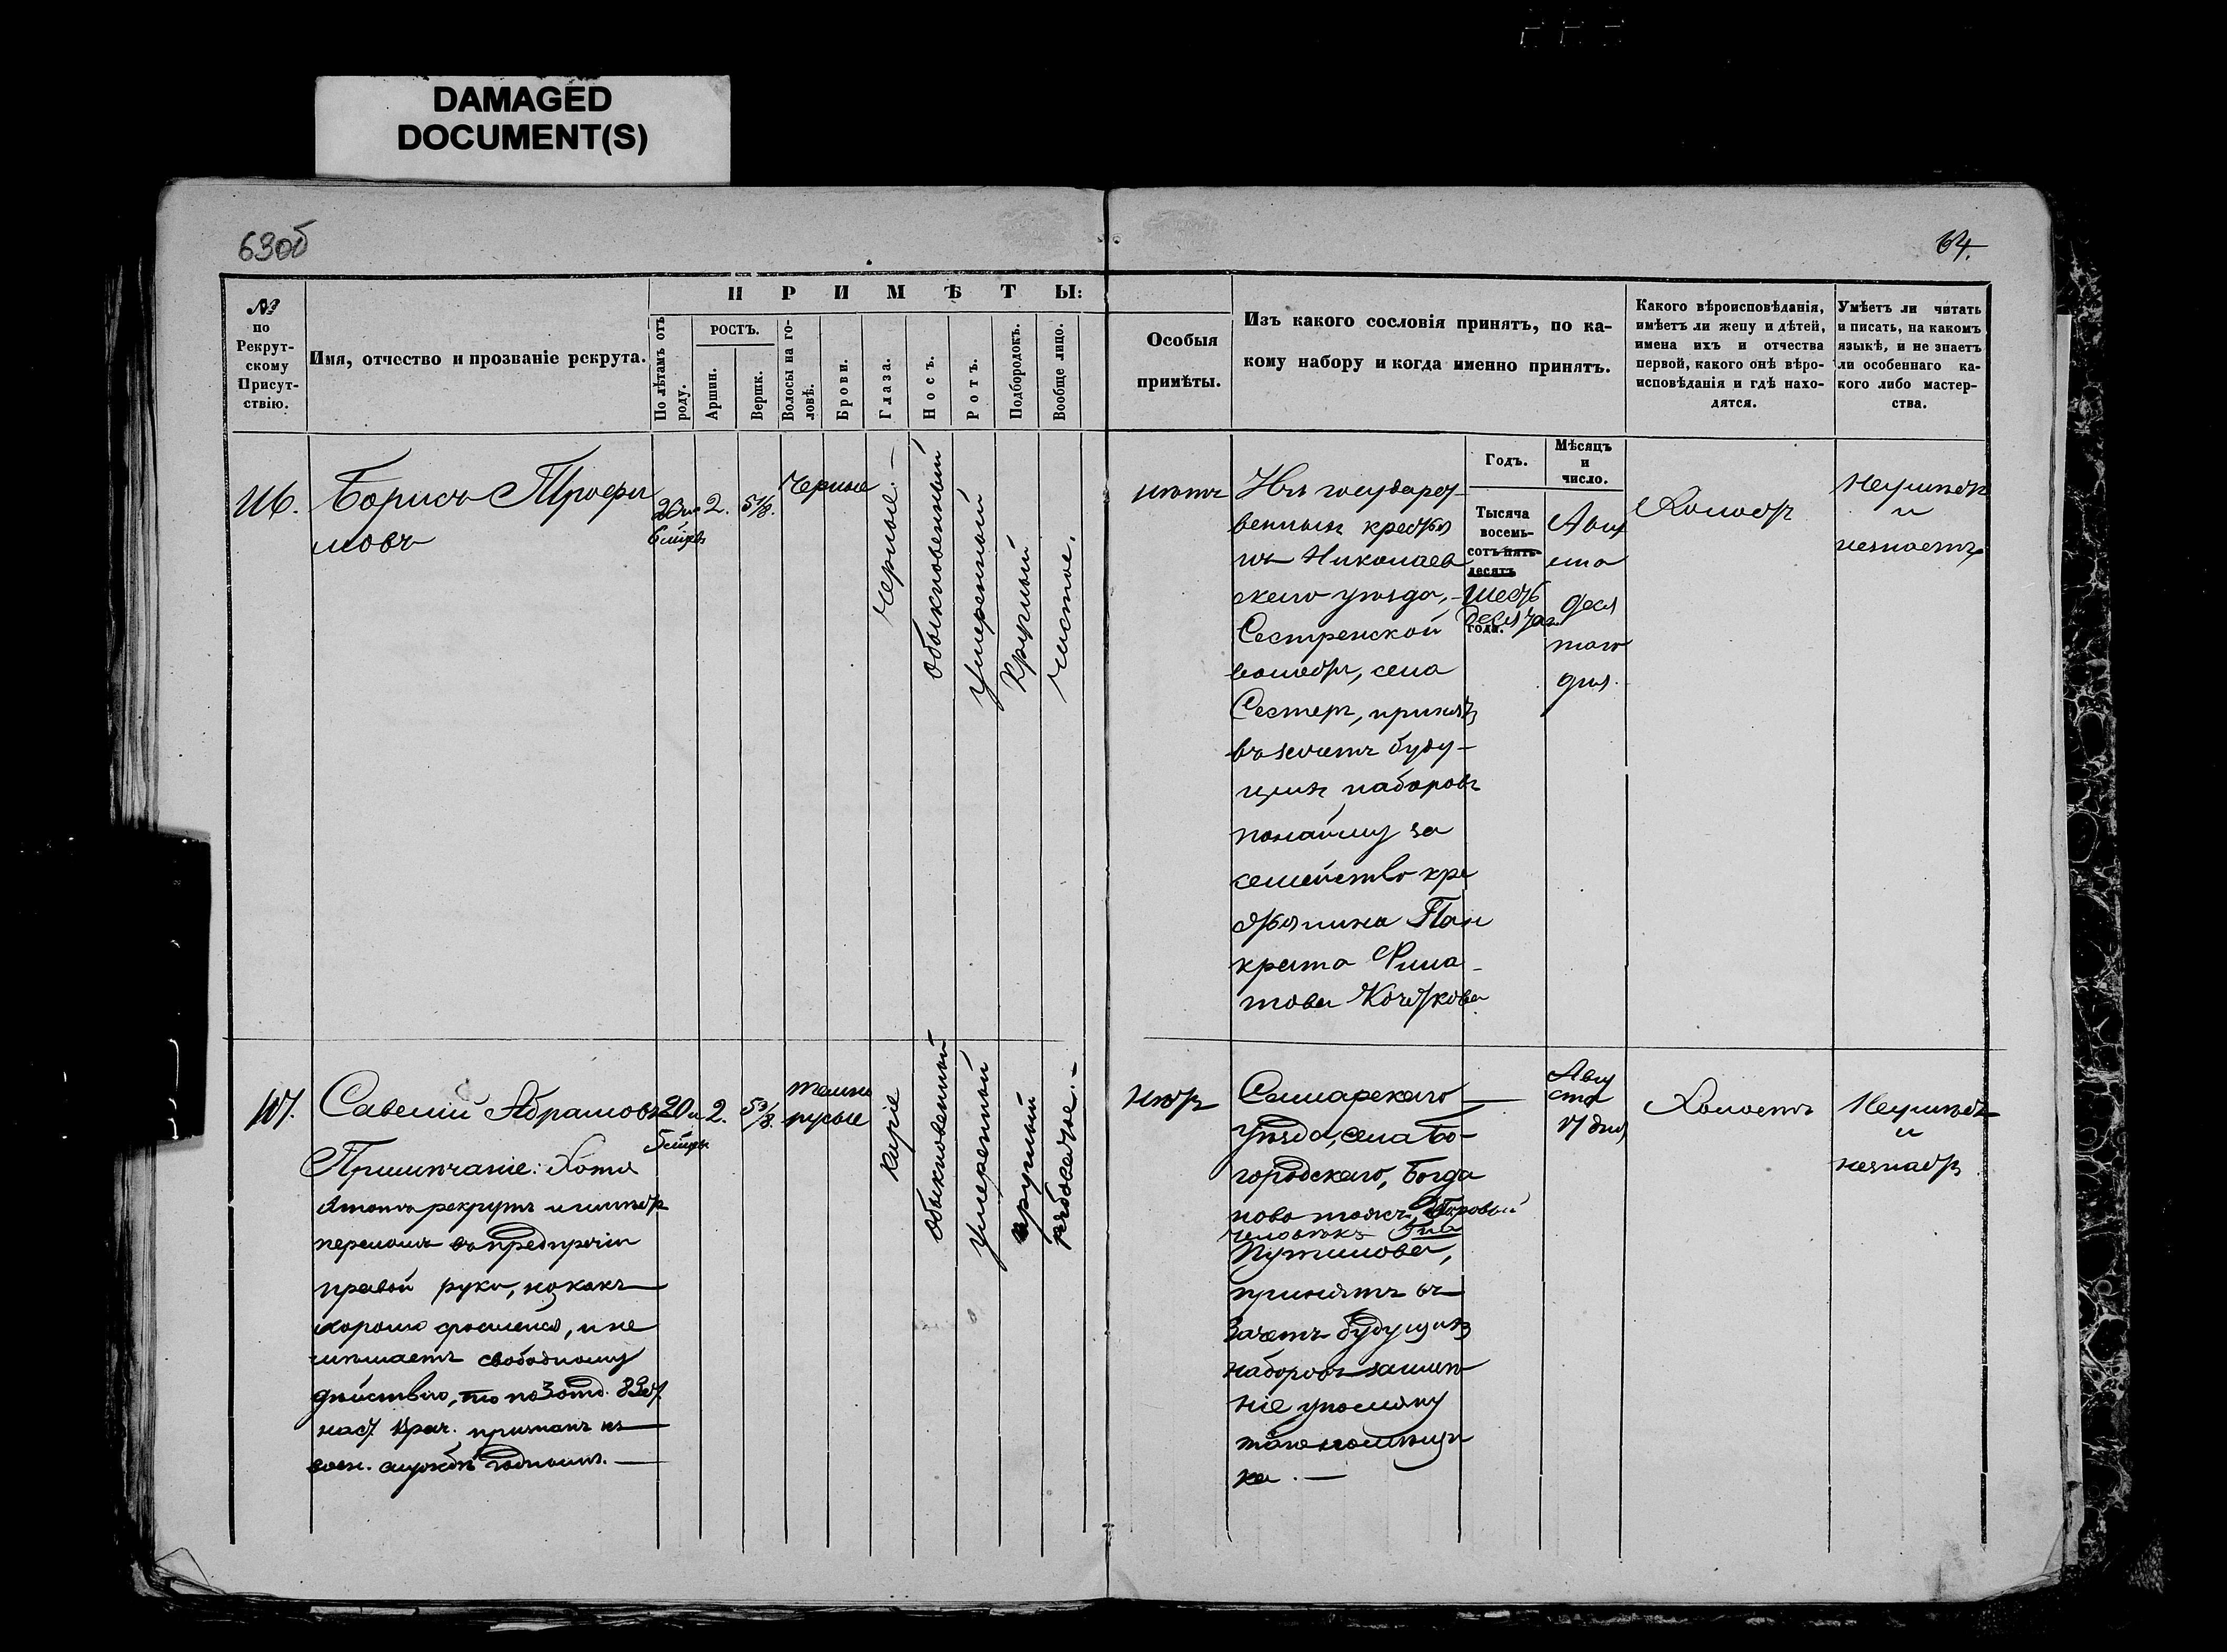 DAMAGED
DOCUMENT(S)
63об
64.
№
по
Рекрут-
скому
Присут-
ствію.
Имя, отчество и прозваніе рекрута.
ПРИМѢТЫ:
По лѣтамъ отъ
роду.
РОСТЪ.
Аршин.
Вершк.
Волосы на го-
ловѣ.
Брови.
Глаза.
Носъ.
Ротъ.
Подбородокъ.
Вообще лицо.
Особыя
примѣты.
Изъ какого сословія принятъ, по ка-
кому набору и когда именно принятъ.
Какого вѣроисповѣданія,
имѣетъ ли жену и дѣтей,
имена ихъ и отчества
первой, какого онѣ вѣро-
исповѣданія и гдѣ нахо-
дятся.
Умѣетъ ли читать
и писать, на какомъ
языкѣ, и не знаетъ
ли особеннаго ка-
кого либо мастер-
ства.
Годъ.
Мѣсяцъ
и
число.
116.
Борисъ Трофи
мовъ
20
2.
5 1/8.
Черные
Черные.
обыкновенный
умеренный
Круглый
чистое.
нѣтъ
Изъ государст
венныхъ крестья
нъ Николаев
скаго уѣзда,
Сестренской
волости, села
Сестеръ, принятъ
въ зачетъ буду-
щихъ наборовъ
по найму за
семейство кре
стьянина Пан
крата Фила-
това Кочеткова
Тысяча
восемь-
сотъ пять
десять
шесть
десятаго
года.
Авгу
ста
деся
таго
дня.
Холостъ
Неумѣетъ
и
незнаетъ
117.
Савелій Абрамовъ
20
2.
5 3/8.
темно
русые
Каріе
обыкновенный
умеренный
круглый
рябоватое.
Примѣчаніе: Хотя
этотъ рекрутъ и имѣетъ
переломъ въ предплечіи
правой руки, но какъ
хорошо сросшейся, и не
мѣшаетъ свободному
дѣйствію, то по 3 отд. 83 ст.
наст. врач. признанъ къ
воен. службѣ годнымъ.
нѣтъ
Самарскаго
уѣзда, села Бо-
городскаго, Богда
ново тожъ, дворовый
человѣкъ Г-на
Путилова,
принятъ въ
зачетъ будущихъ
наборовъ за имѣ
ніе упомяну
таго помѣщи
ка.
Авгу
ста
17 дня
Холостъ
Неумѣетъ
и
незнаетъ